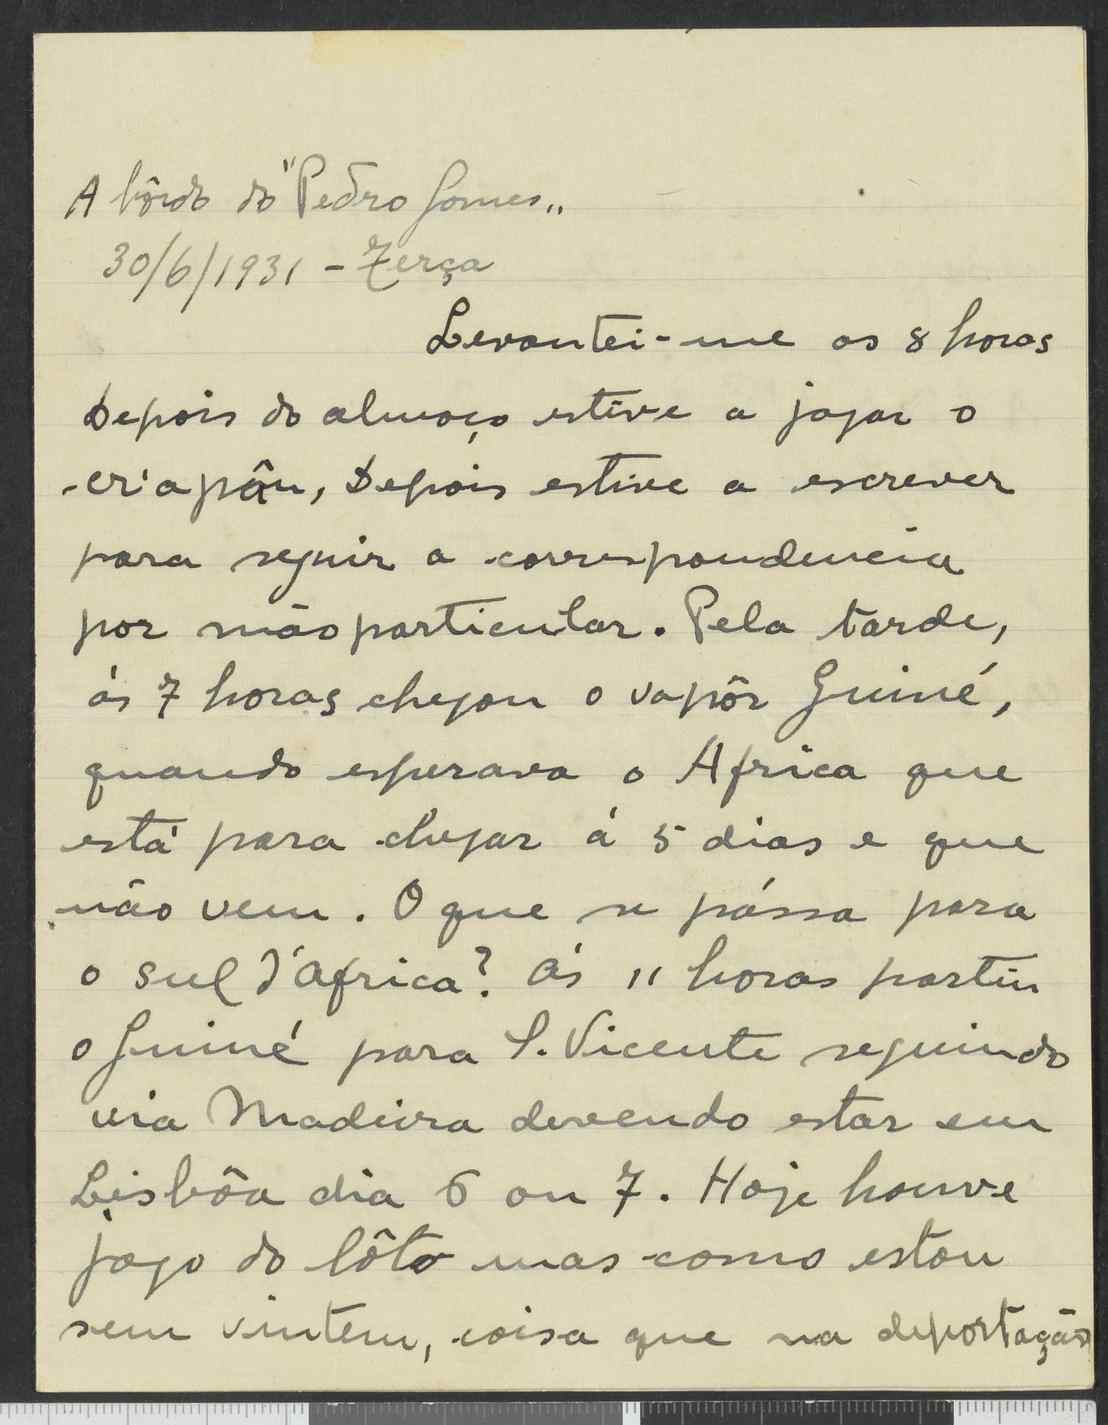 A bôrdo do "Pedro Gomes"
30/6/1931 - Terça
Levantei-me as 8 horas
Depois do almoço estive a jogar o
criapâu, Depois estive a escrever
para seguir a correspondencia
por mão particular. Pela tarde,
ás 7 horas chegou o vapôr Guiné,
quando esperava o Africa que
está para chegar á 5 dias e que
não vem. O que se pássa para
o sul d'Africa? Ás 11 horas partiu
o Guiné para S. Vicente seguindo
via Madeira devendo estar em
Lisbôa dia 6 ou 7. Hoje houve
jogo do lôto mas como estou
sem vintem, coisa que na deportação